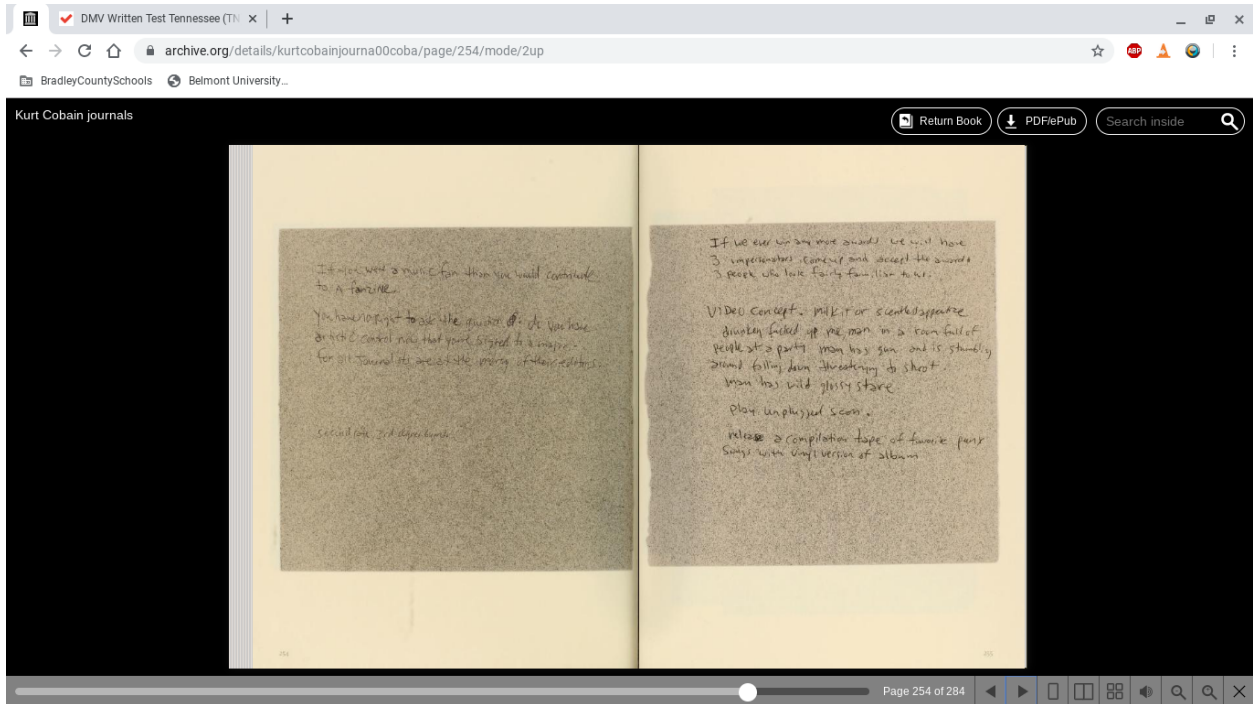 DMV Written Test Tennessee (TN
archive.org/details/kurtcobainjourna00coba/page/254/mode/2up
ABP
BradleyCountySchools
Belmont University...
Kurt Cobain journals
Return Book
PDF/ePub
Search inside
If you were a music fan than you would contribute
to a fanzine.
You have no right to ask the question do you have
artistic control now that you're signed to a major.
for all Journalists are at the mercy of their editors.
second rate 3rd degree burns
254
If we ever win any more awards we will have
3 impersonators come up and accept the awards
3 people who look fairly familiar to us.
VIDEO Concept. milk it or scentless apprentice
drunken fucked up me man in a room full of
people at a party man has gun and is stumbling
around falling down threatening to shoot.
man has wild glossy stare
play unplugged soon.
release a compilation tape of favorite punk
Songs with vinyl version of album
255
Page 254 of 284